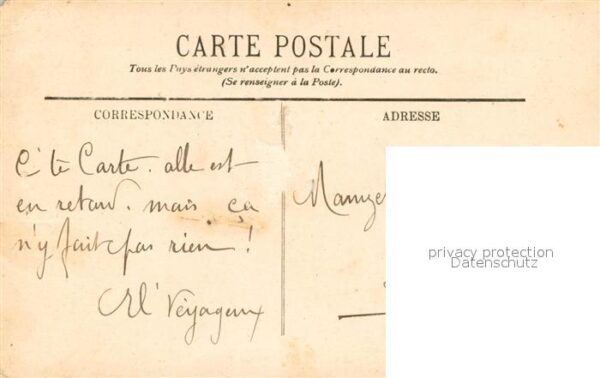 CARTE POSTALE
Tous les Pays étrangers n'acceptent pas la Correspondance au recto.
(Se renseigner à la Poste).
CORRESPONDANCE
C'te Carte. alle est
en retard. mais ça
n'y fait pas rien !
l' Veyageux
ADRESSE
privacy protection
Datenschutz